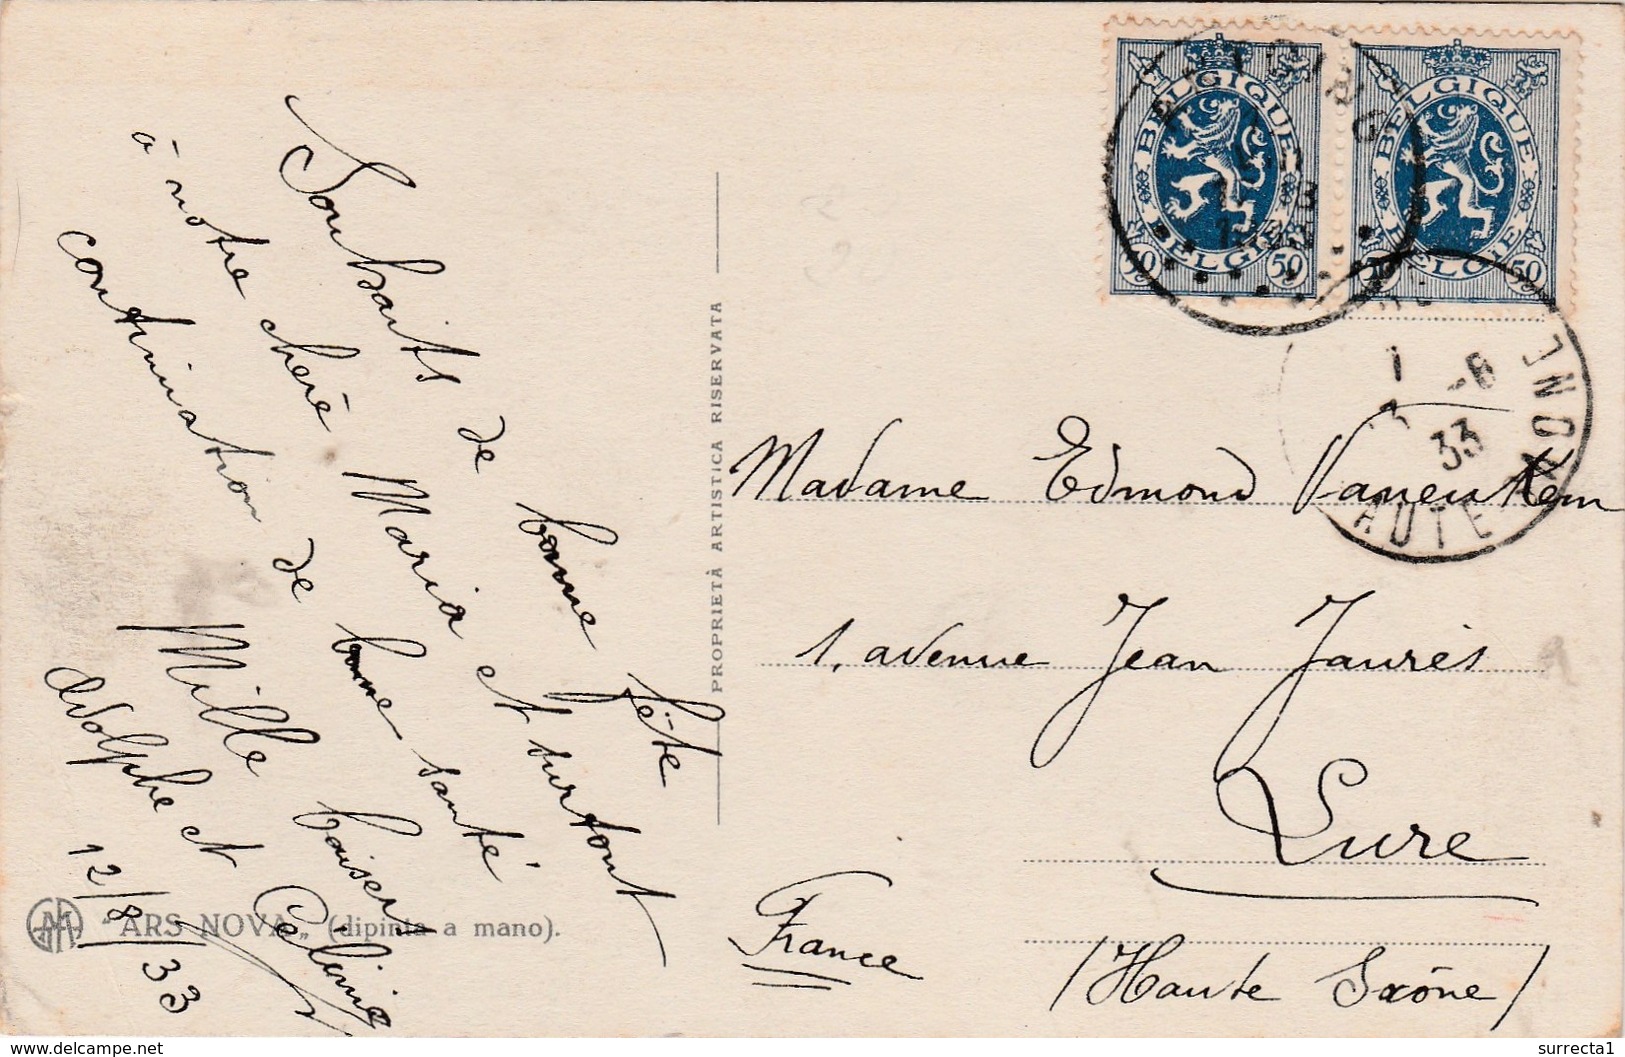 Souhaits de bonne fête
à notre chère Maria et surtout
continuation de bonne santé
Mille baisers
Adolphe et Célinie
12/8/33
"ARS NOVA„ (dipinta a mano).
PROPRIETÀ ARTISTICA RISERVATA
BELGIQUE
BELGIE
50 50
BELGIQUE
BELGIE
50 50
1933
-8
33
AUTE
Madame Edmond
1, avenue Jean Jaurès
Lure
France
(Haute Saône)
delcampe.net
surrecta1